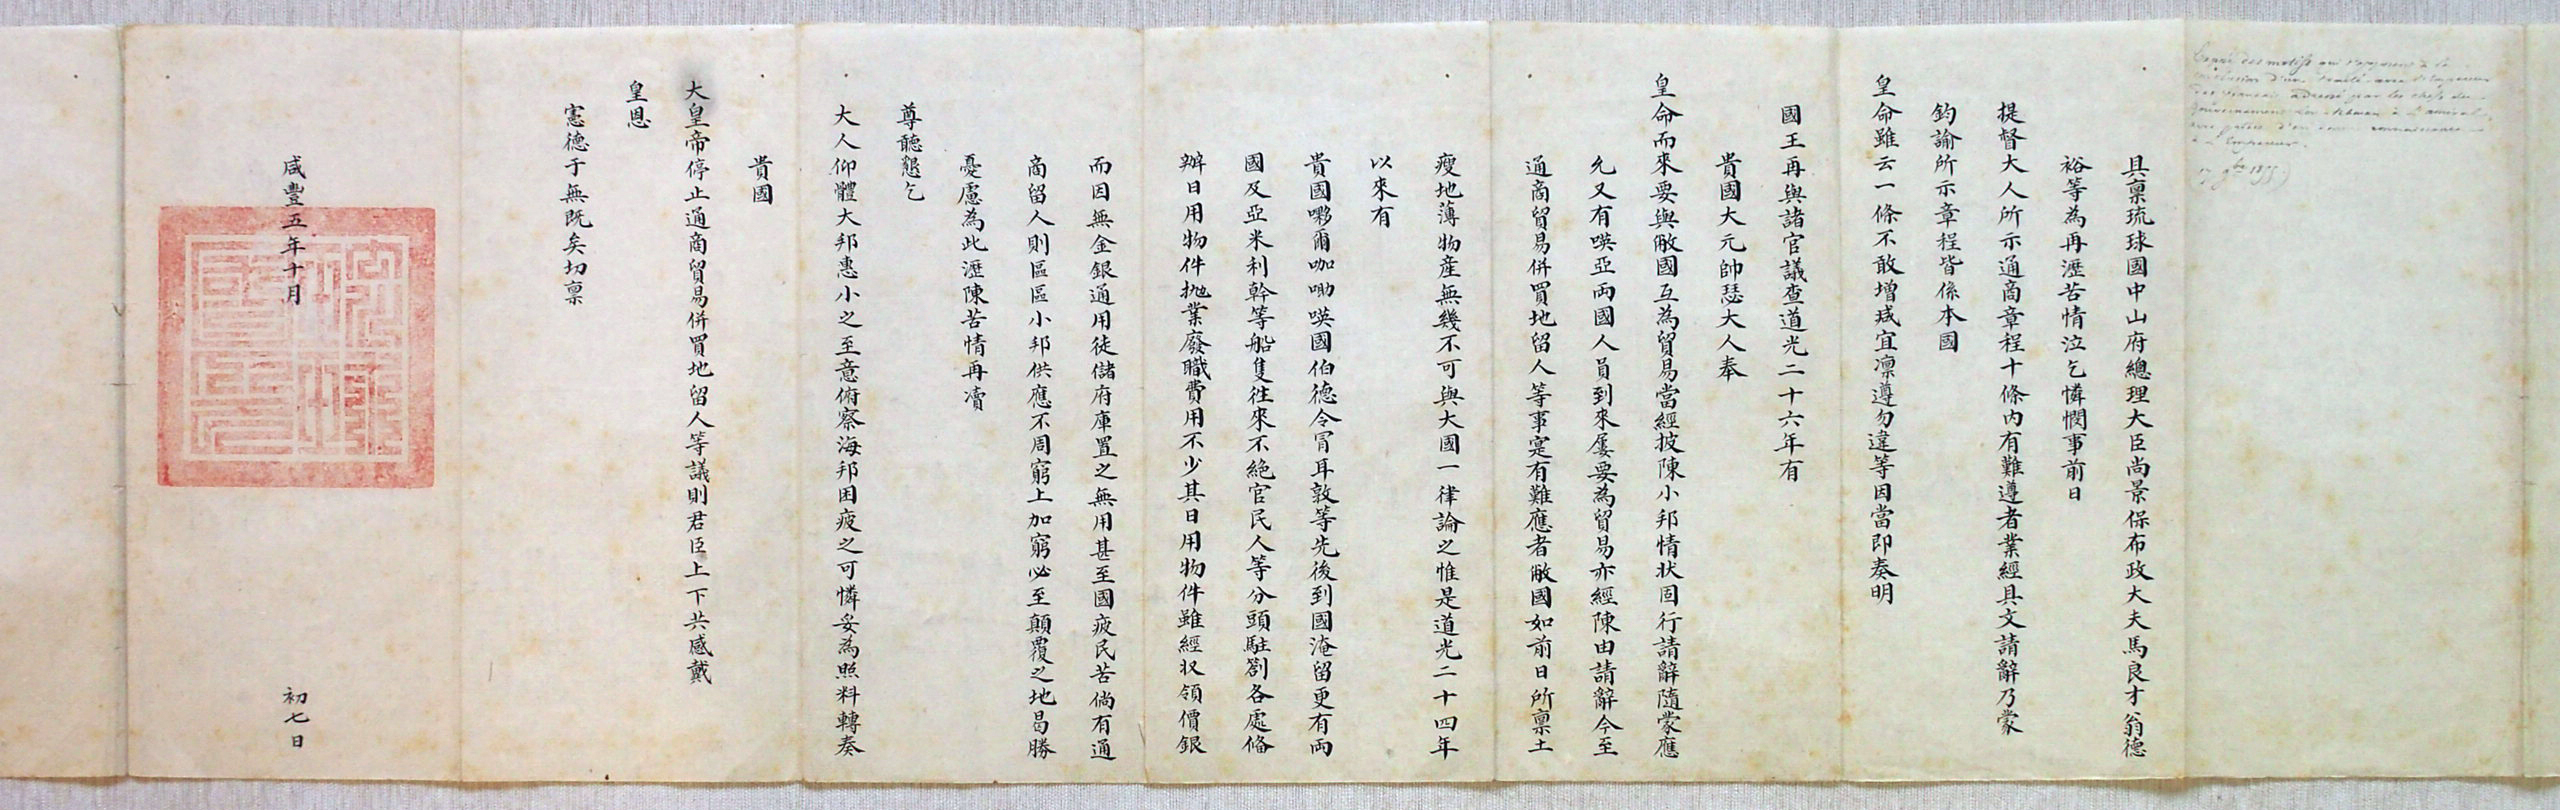 具稟琉球國中山府總理大臣尚景保布政大夫馬良才翁德
裕等為再瀝苦情泣乞憐憫事前日
提督大人所示通商章程十條內有難遵者業經具文請辭乃蒙
鈞諭所示章程皆係本國
皇命雖云一條不敢增減宜凛遵勿違等因當即奏明
國王再與諸官議查道光二十六年有
貴國大元帥瑟大人奉
皇命而來要與敝國互為貿易當經披陳小邦情狀固行請辭隨蒙應
允又有𠸄亞兩國人員到來屢要為貿易亦經陳由請辭今至
通商貿易併買地留人等事寔有難應者敝國如前日所禀土
瘦地薄物產無幾不可與大國一律論之惟是道光二十四年
以來有
貴國嘞爾咖嘞𠸄國伯德令冐耳敦等先後到國淹留更有兩
國及亞米利幹等船隻徃來不絕官民人等分頭駐劄各處俻
辦日用物件抛業廢職費用不少其日用物件雖經収領價銀
而因無金銀通用徒儲府庫置之無用甚至國疲民苦倘有通
商留人則區區小邦供應不周窮上加窮必至顛覆之地曷勝
憂慮為此瀝陳苦情再凟
尊聽懇乞
大人仰體大邦惠小之至意俯察海邦困疲之可憐妥為照料轉奏
貴國
大皇帝停止通商貿易併買地留人等議則君臣上下共感戴
皇恩
憲德于無既矣切禀
咸豐五年十月
初七日